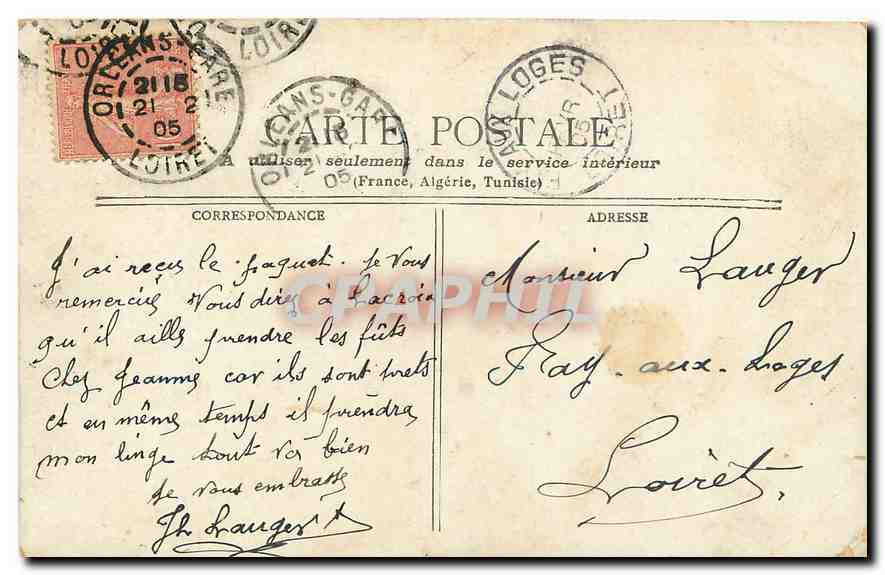 LOIRET
ORLEANS-GARE
21 15
21 2
05
LOIRET
ORLEANS-GARE
21
05
AUX LOGES
CARTE POSTALE
A utiliser seulement dans le service intérieur
(France, Algérie, Tunisie)
CORRESPONDANCE
ADRESSE
J'ai reçus le paquet. Je vous
remercie Vous direz à Lacroix
qu'il aille prendre les fûts
chez Jeanne car ils sont prets
et en même temps il prendra
mon linge tout va bien
Je vous embrasse
Th Lauger
Monsieur Lauger
Fay-aux-Loges
Loiret
CPAPHIL